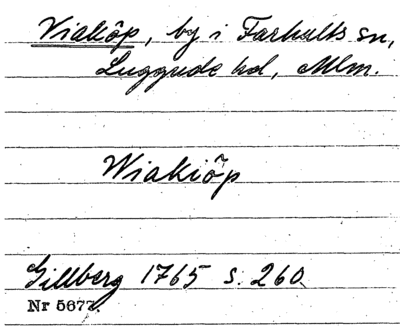 Viaköp, by i Farhults sn,
Luggude hd, Mlm.
Wiakiöp
Gillberg 1765 s. 260.
Nr 5677.